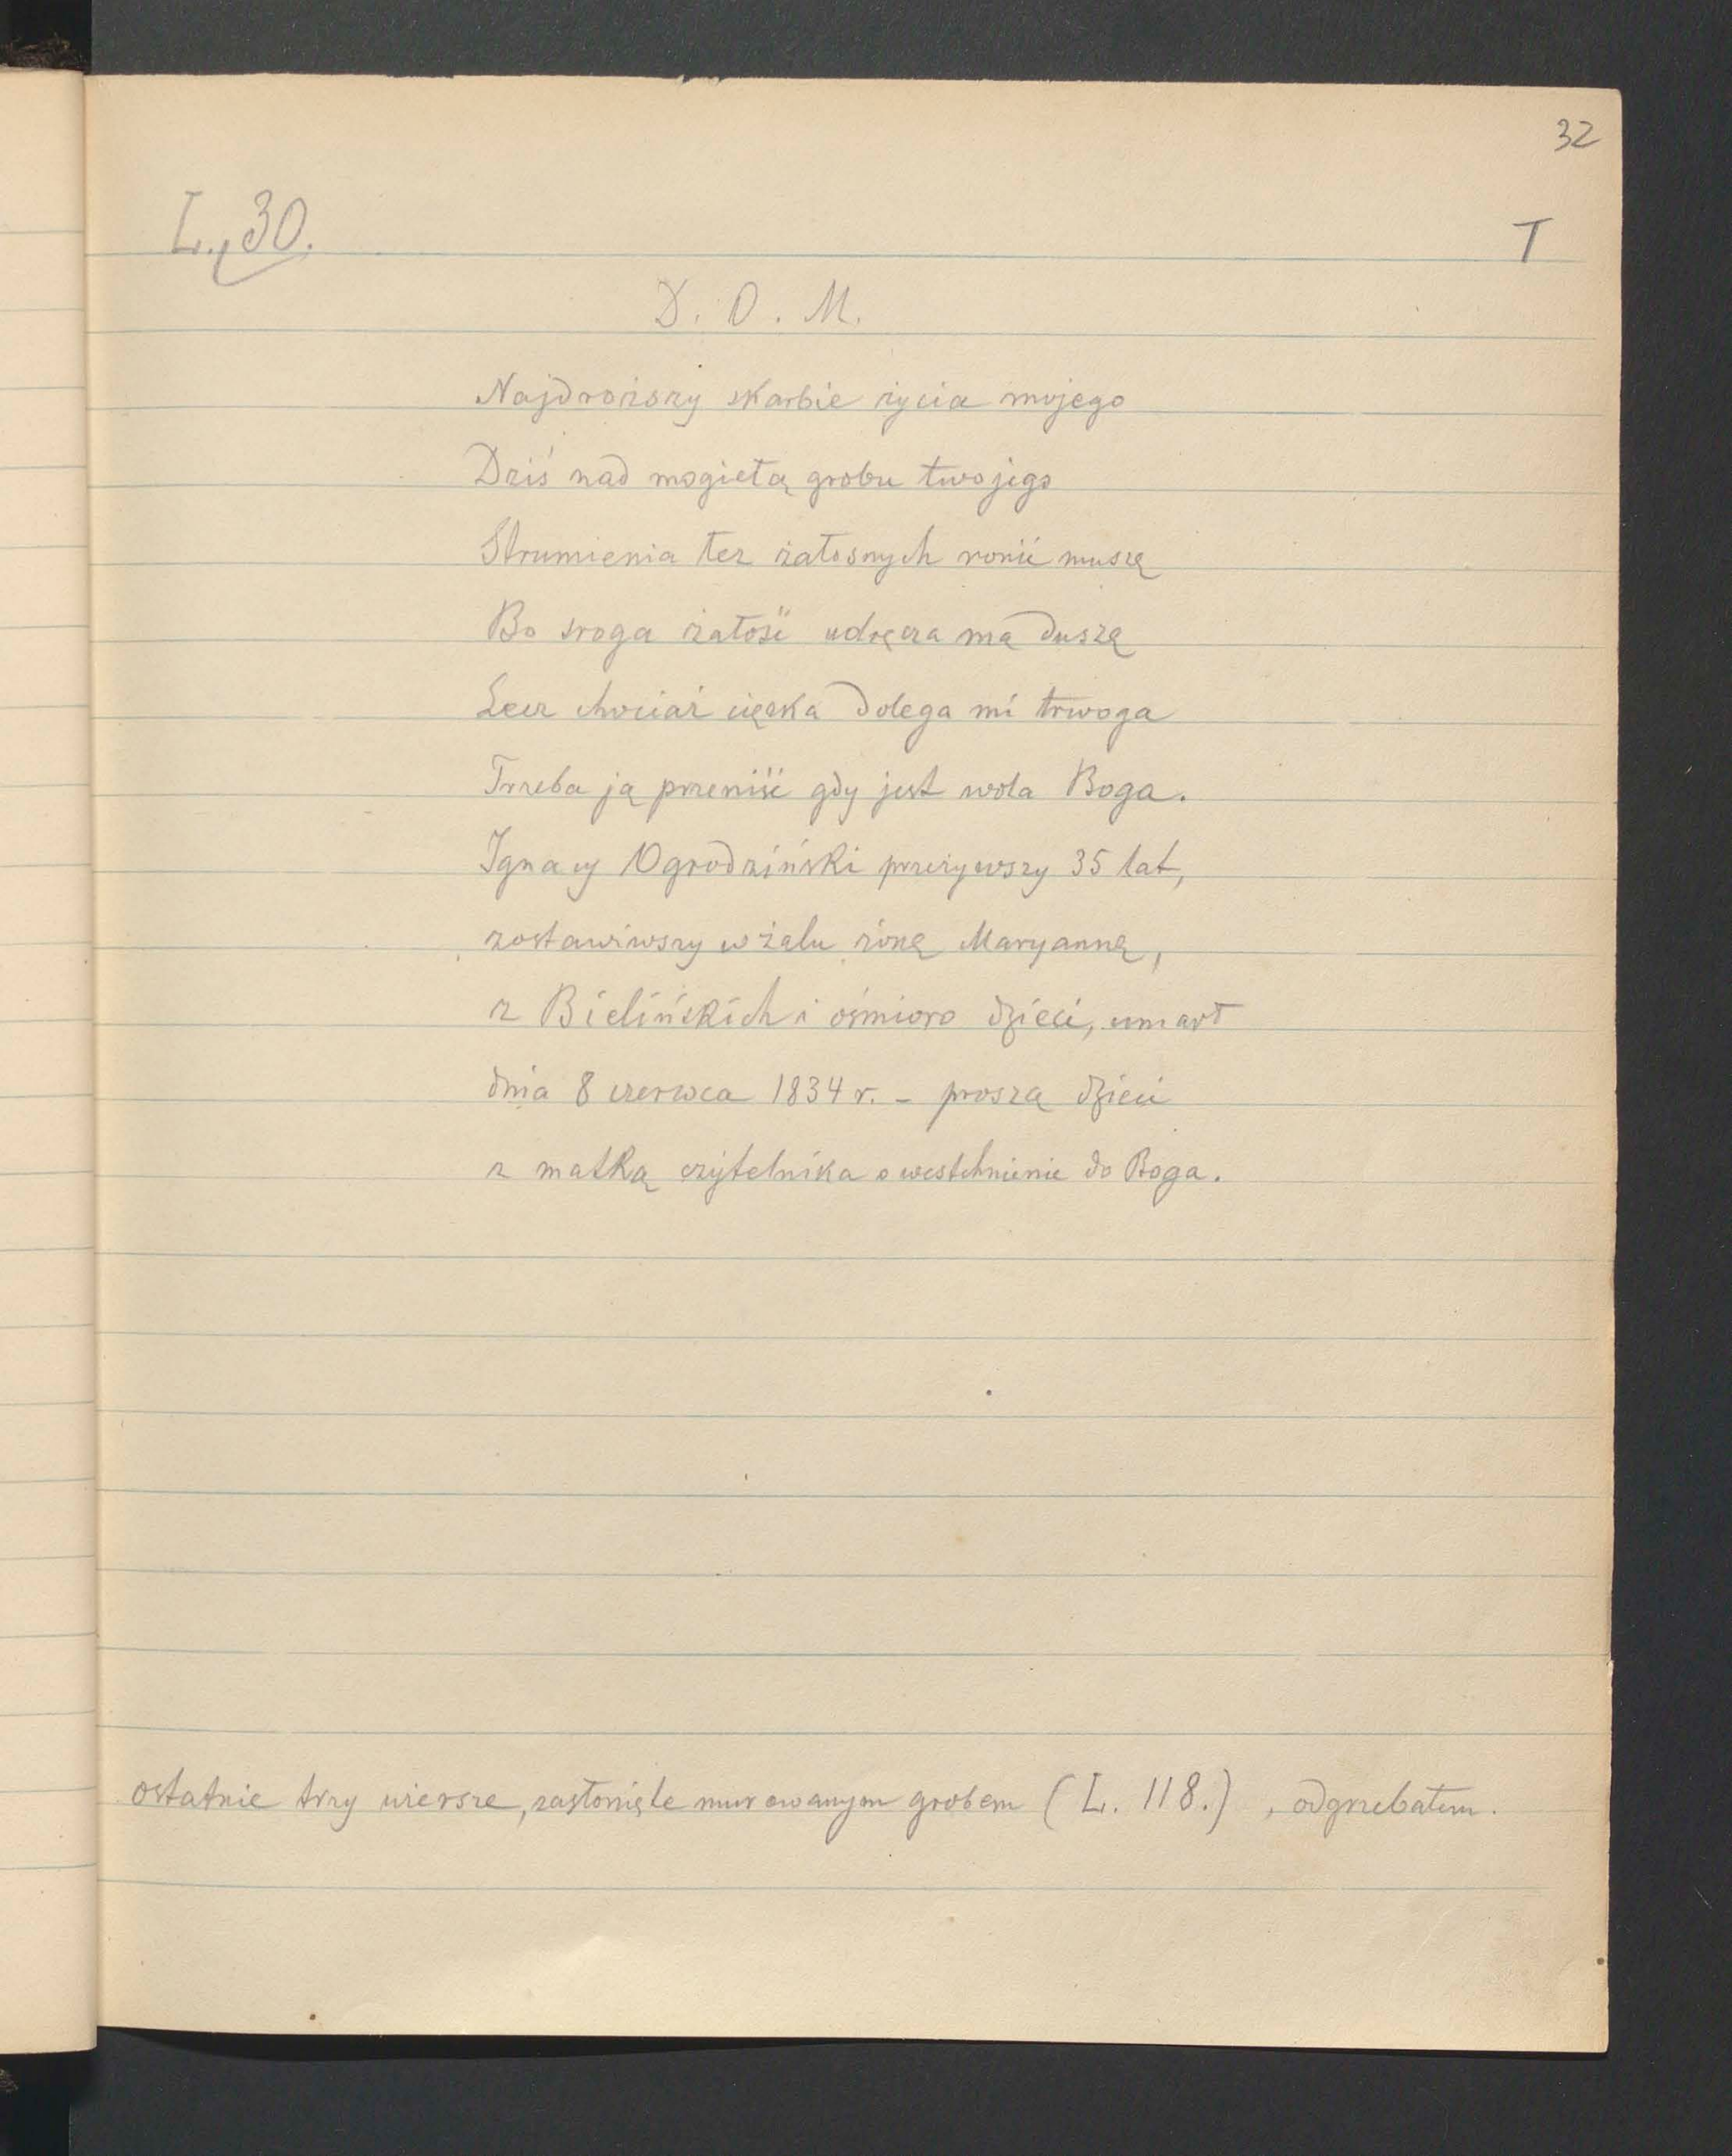 32
L. 30.
T
D. O. M.
Najdroższy skarbie życia mojego
Dziś nad mogiłą grobu twojego
Strumienia łez żałosnych ronić muszę
Bo sroga żałość udręcza mą duszę
Lecz chociaż ciężka dolega mi trwoga
Trzeba ją przenieść gdy jest wola Boga.
Ignacy Ogrodziński przeżywszy 35 lat,
zostawiwszy w żalu żonę Maryannę,
z Bielińskich i ośmioro dzieci, umarł
dnia 8 czerwca 1834 r. - proszą dzieci
z matką czytelnika o westchnienie do Boga.
ostatnie trzy wiersze, zasłonięte murowanym grobem (L. 118.), odgrzebałem.